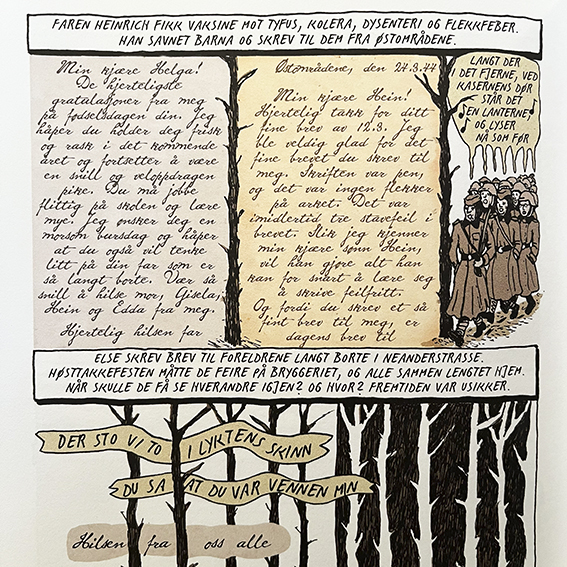 FAREN HEINRICH FIKK VAKSINE MOT TYFUS, KOLERA, DYSENTERI OG FLEKKFEBER.
HAN SAVNET BARNA OG SKREV TIL DEM FRA ØSTOMRÅDENE.
Min kjære Helga!
De hjerteligste
gratulasjoner fra meg
på fødselsdagen din. Jeg
håper du holder deg frisk
og rask i det kommende
året og fortsetter å være
en snill og veloppdragen
pike. Du må jobbe
flittig på skolen og lære
mye. Jeg ønsker deg en
morsom bursdag og håper
at du også vil tenke
litt på din far som er
så langt borte. Vær så
snill å hilse mor, Gisela,
Hein og Edda fra meg.
Hjertelig hilsen far
Østområdene, den 24.3.44
Min kjære Hein!
Hjertelig takk for ditt
fine brev av 12.3. Jeg
ble veldig glad for det
fine brevet du skrev til
meg. Skriften var pen,
og det var ingen flekker
på arket. Det var
imidlertid tre stavefeil i
brevet. Slik jeg kjenner
min kjære sønn Hein,
vil han gjøre alt han
kan for snart å lære seg
å skrive feilfritt.
Og fordi du skrev et så
fint brev til meg, er
dagens brev til
LANGT DER
I DET FJERNE, VED
KASERNENS DØR
STÅR DET
EN LANTERNE
OG LYSER
NÅ SOM FØR
ELSE SKREV BREV TIL FORELDRENE LANGT BORTE I NEANDERSTRASSE.
HØSTTAKKEFESTEN MÅTTE DE FEIRE PÅ BRYGGERIET, OG ALLE SAMMEN LENGTET HJEM.
NÅR SKULLE DE FÅ SE HVERANDRE IGJEN? OG HVOR? FREMTIDEN VAR USIKKER.
DER STO VI TO I LYKTENS SKINN
DU SA AT DU VAR VENNEN MIN
Hilsen fra oss alle